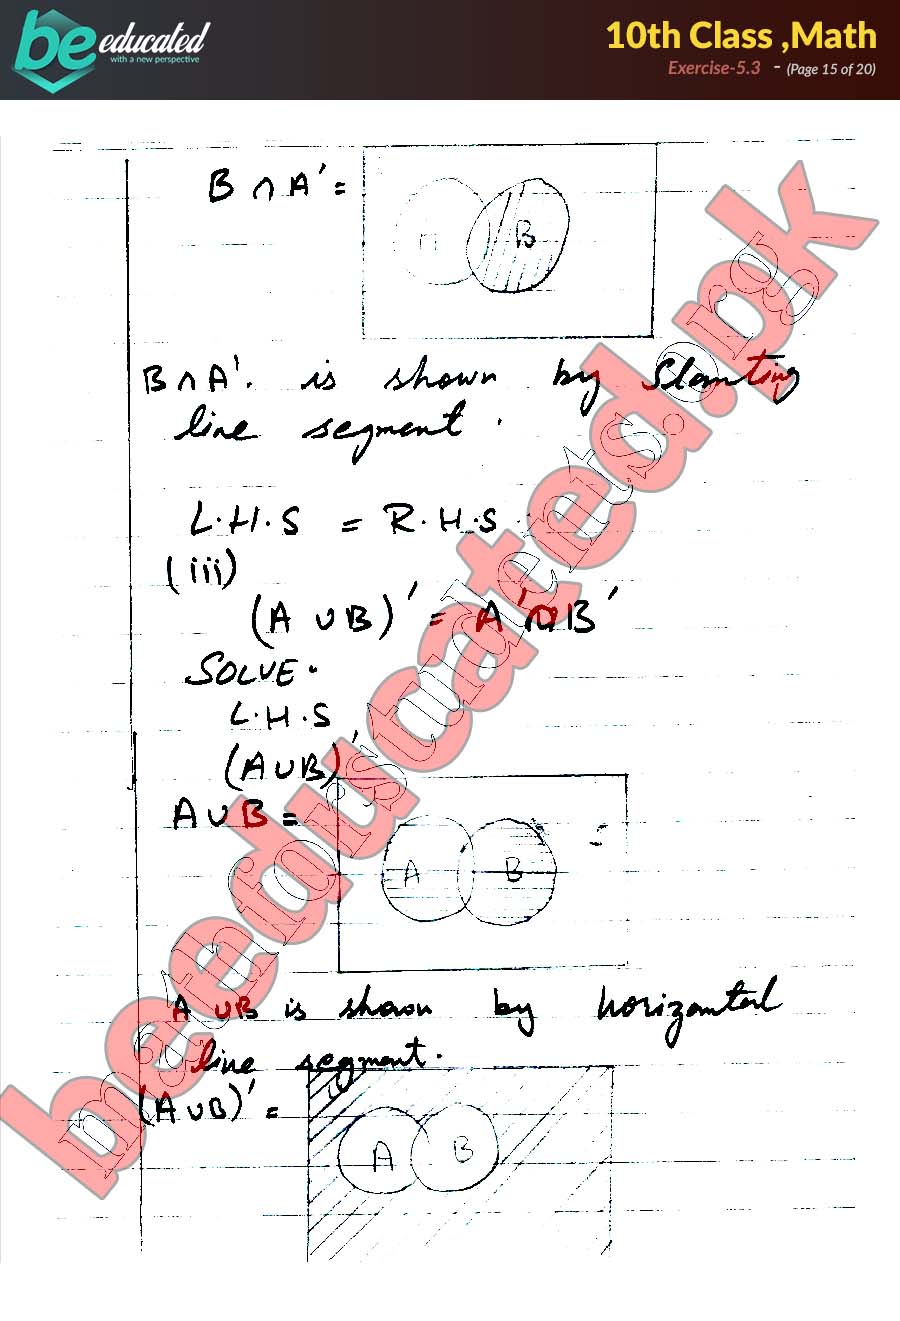 be educated
with a new perspective
10th Class ,Math
Exercise-5.3 - (Page 15 of 20)
B ∩ A' =
B
B ∩ A'. is shown by Slanting
line segment .
L.H.S = R.H.S
(iii)
(A ∪ B)' = A' ∩ B'
SOLVE.
L.H.S
(A ∪ B)'
A ∪ B =
A B
A ∪ B is shown by horizontal
line segment.
(A ∪ B)' =
A B
beeducated.pk